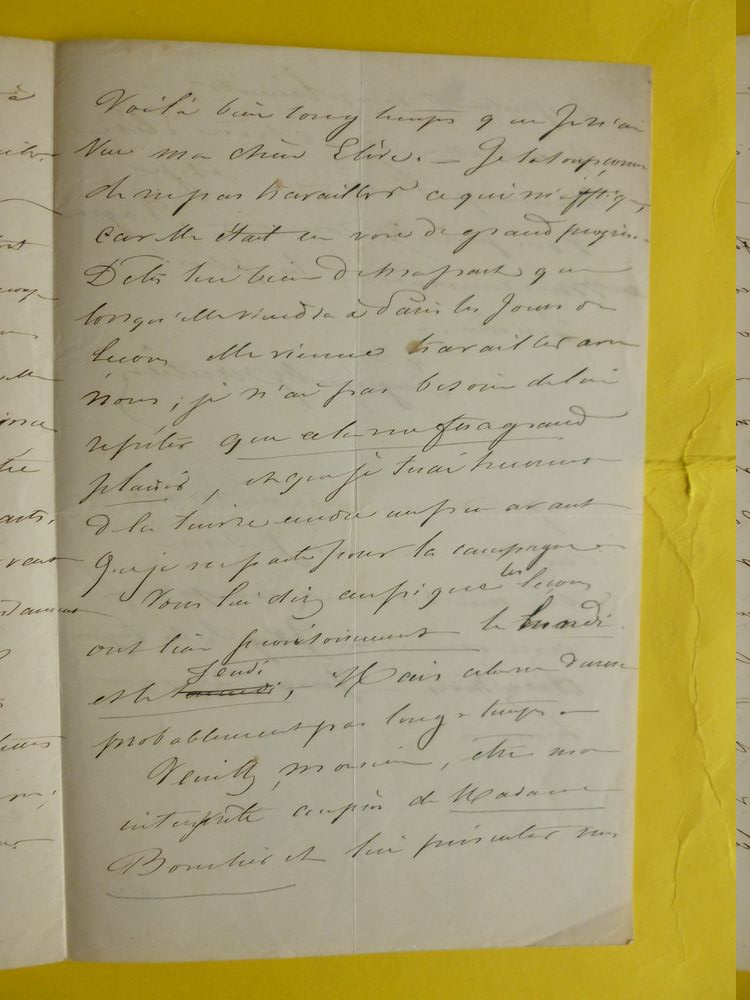 Voilà bien long temps que Je n'ai
Vue ma chère Elève. — Je la soupçonne
de ne pas travailler ce qui m'afflige,
car elle était en voie de grand progrès. -
Dites lui bien de ma part que
lorsqu'elle viendra à Paris les Jours de
leçons elle vienne travailler avec
nous ; je n'ai pas besoin de lui
répéter que cela me fera grand
plaisir, et que je serai heureux
de la suivre encore un peu avant
que je ne parte pour la campagne -
Vous lui direz aussi que les leçons
ont lieu provisoirement le lundi
et le Jeudi, - Mais cela ne durera
probablement pas long-temps -
Veuillez, monsieur, être mon
interprète auprès de Madame
et lui présenter mes